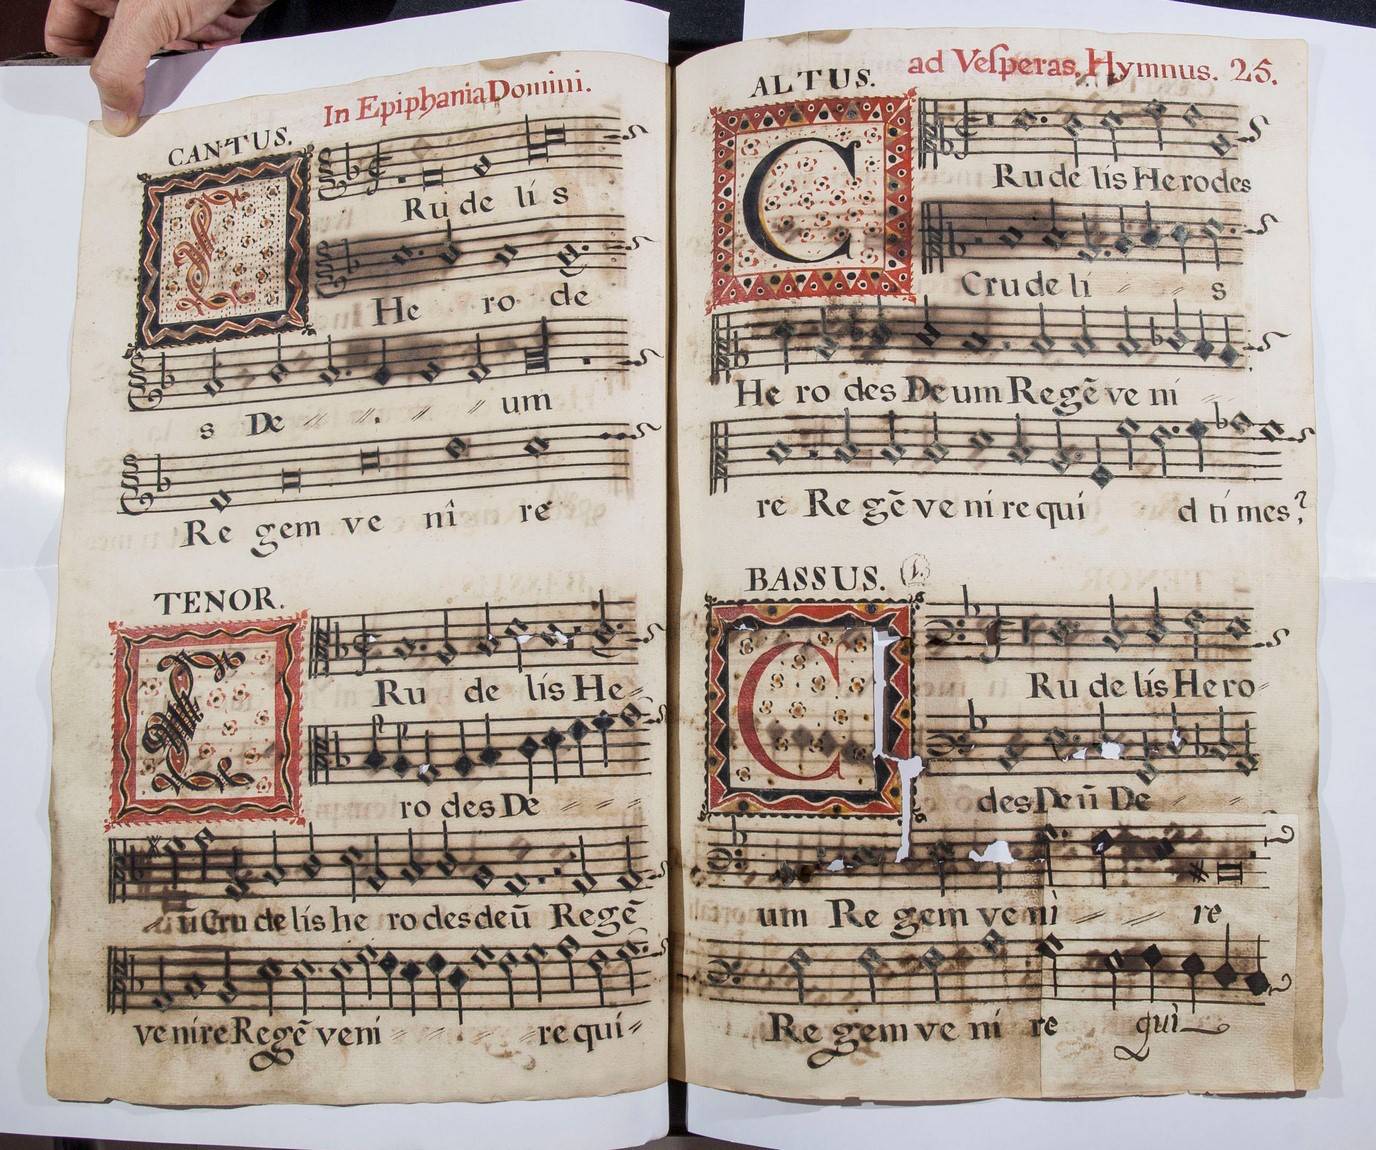 In Epiphania Domini.
CANTUS.
Ru de li s
He ro de
s De um
Re gem ve nî re
TENOR.
C
Ru de lis He
ro des De
ū Cru de lis he ro des deū Regē
ve nire Regē veni re qui
ad Vesperas. Hymnus. 25.
ALTUS.
C
Ru de lis He rodes
Cru de li s
He ro des De um Re gē ve ni
re Re gē ve ni re qui d ti mes?
BASSUS. 1.
C
Ru de lis He ro
des Deū De
um Re gem ve ni re
Re gem ve ni re qui